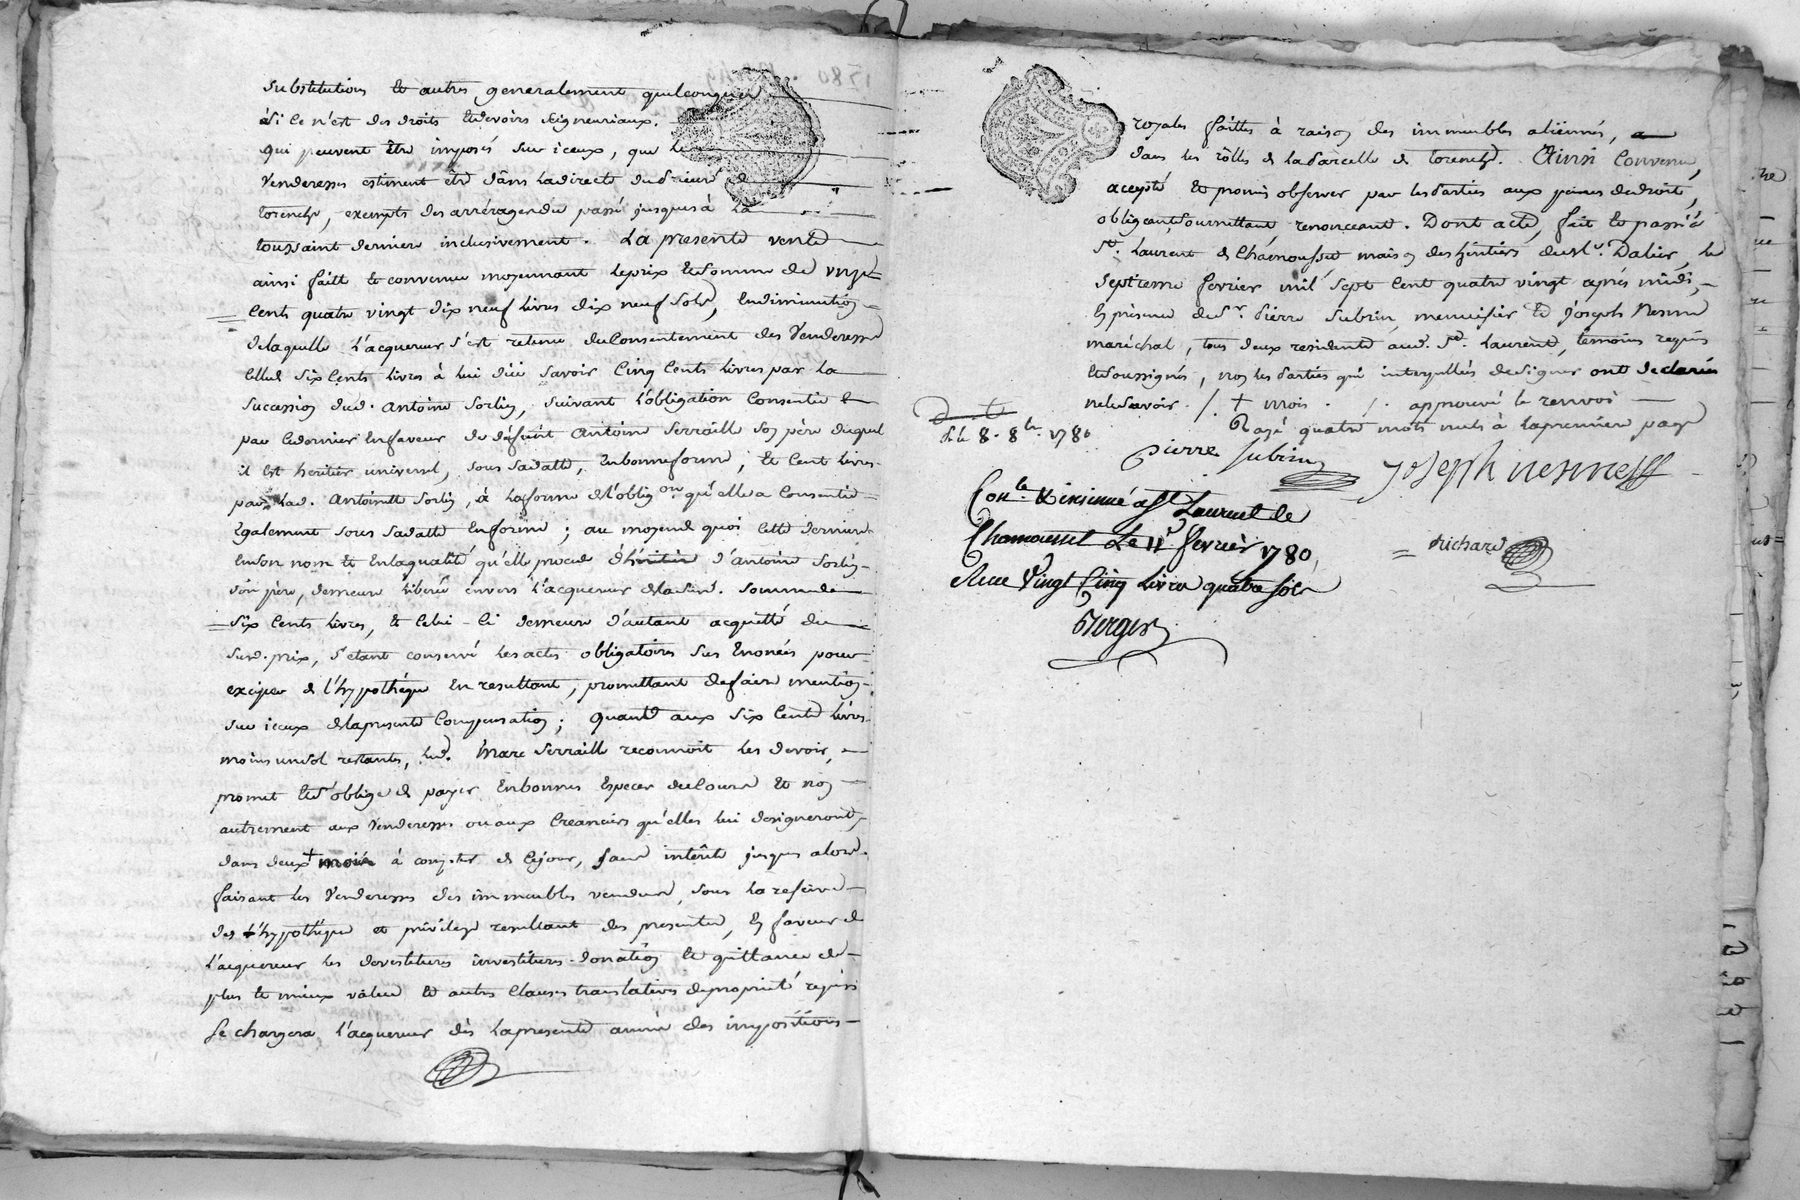 substitutions et autres generalement quelconques
si ce n'est des droits et devoirs seigneuriaux.
qui peuvent être imposés sur iceux, que les
Venderesses estiment être dans la directe du prieuré de
torenche, exempts des arrérages du passé jusques à la
toussaint derniere inclusivement. La presente vente
ainsi faite et convenue moyennant le prix et somme de onze
cents quatre vingt dix neuf livres dix neuf sols, en diminution
de laquelle l'acquereur s'est retenu du consentement des Venderesses
celle de six cents livres à lui düe savoir cinq cents livres par la
succession dud. antoine Sorlin, suivant l'obligation consentie
par ce dernier en faveur de défunt antoine Serraille son père duquel
il est heritier universel, sous sa datte, en bonne forme; et cent livres
par lad. antoinette Sorlin, à la forme de l'oblig.on qu'elle a consentie
egalement sous sa datte en forme; au moyen de quoi cette derniere
en son nom et en la qualité qu'elle procede d'héritière d'antoine Sorlin
son père, demeure libérée envers l'acquereur de lad. somme de
six cents livres, et celui-ci demeure d'autant acquitté du
sud. prix, s'etant conservé les actes obligatoires sus enonçés pour
exciper de l'hypothéque en resultant, promettant de faire mention
sur iceux de la presente compensation; quand aux six cents livres
moins un sol restants, led. Marc Serraille reconnoit les devoir,
promet et s'oblige de payer en bonnes especes de cours et non
autrement aux Venderesses ou aux creanciers qu'elles lui designeront,
dans deux + mois à compter de ce jour, sans intérêts jusques alors.
faisant les Venderesses des immeubles vendus, sous la reserve
de l'hypothéque et privilege resultant des presentes, en faveur de
l'acquereur les devestitures investitures donation et quittance de
plus et mieux value et autres clauses translatives de proprieté requises
se chargera l'acquereur dès la presente année des impositions
royales faittes à raison des immeubles aliénnés,
dans les rôlles de la parcelle de torenche. Ainsi convenu,
accepté et promis observer par les parties aux peines de droit,
obligeant, soumettant, renonceant. Dont acte, fait et passé à
St. Laurent de Chamousset maison des héritiers du sr. Dalier, le
septieme fevrier mil sept cent quatre vingt après midi,
en présence de sr. Pierre Subrin menuisier et Joseph Nesme
maréchal, tous deux residents aud. St. Laurent, temoins requis
et soussignés, non les parties qui interpellées de signer ont declaré
ne le savoir. /. + mois . /. approuvé le renvoi
Rayé quatre mots nuls à la premiere page
dé le 8. 8bre. 1780
Pierre Subrin
Joseph nesme
Conlé. & insinué a St Laurent de
Chamousset Le 11e fevrier 1780,
Reçu Vingt Cinq livres quatre sols
Berger
Richard